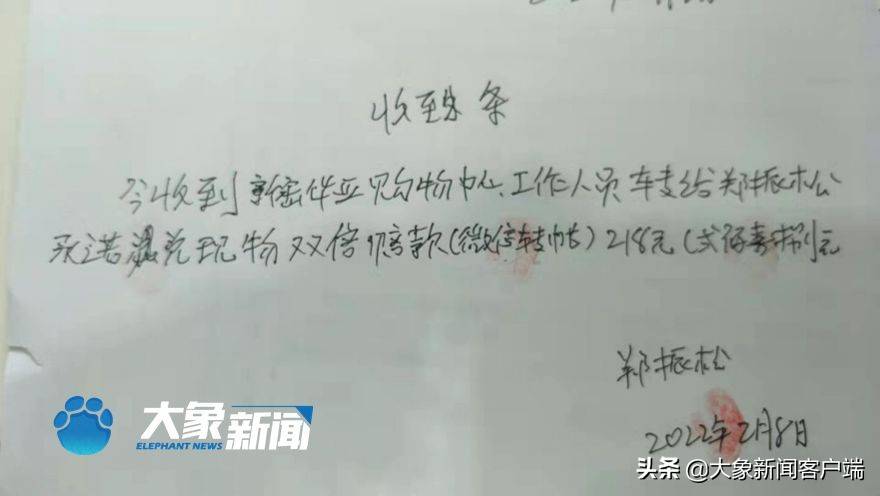 收到条
今收到新密伟亚购物中心工作人员转给郑振松
承诺兑现物双倍赔款(微信转帐)218元(贰佰壹拾捌元
郑振松
2022年2月8日
大象新闻
ELEPHANT NEWS
头条 @大象新闻客户端